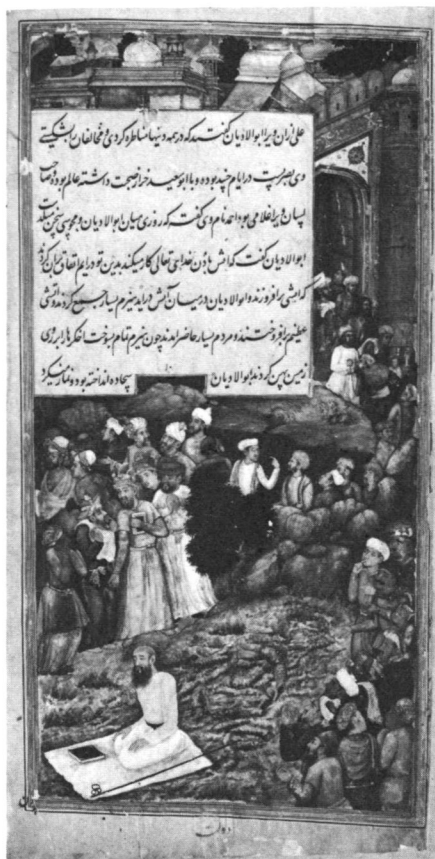 علی زمان ویرا ابوالادیان گفتند که در همه دینها مناظره کردی و مخالفان را بشکستی
وی بصریست در ایام جنید بوده و با ابو سعید خراز صحبت داشته عالم بوده و صاحب
لسان ویرا غلامی بود احمد نام وی گفت که روزی میان ابوالادیان و مجوسی سخن میگذشت
ابوالادیان گفت که آتش باذن خدای تعالی کار میکند بدین تو در ایم اتفاق بران کردند
که آتشی را فروزند و ابوالادیان در میان آتش در اید هیزم بسیار جمع کردند و آتشی
عظیم برافروختند و مردم بسیار حاضر امدند چون هیزم تمام بسوخت اخکرها را بر روی
زمین پهن کردند ابوالادیان سجاده انداخته بود و نماز میکرد